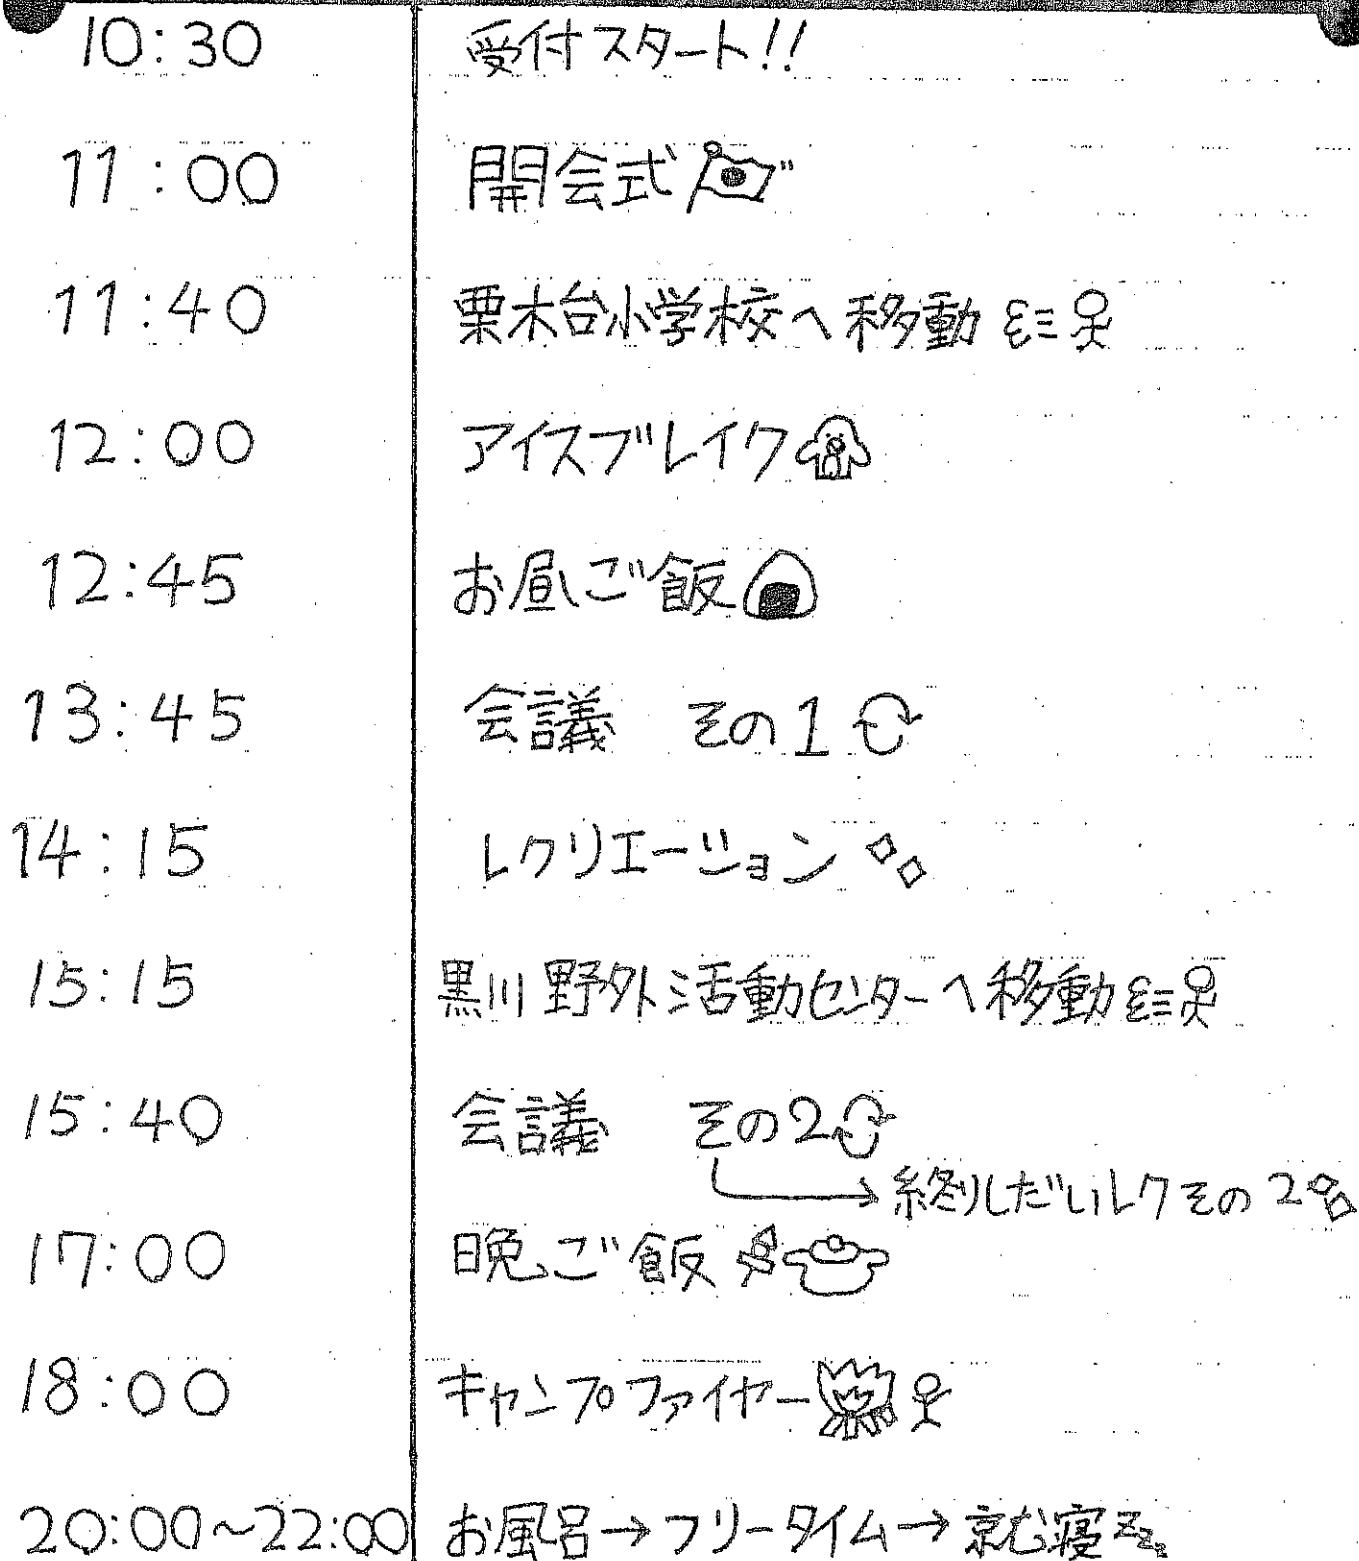 10:30 受付スタート!!
11:00 開会式
11:40 栗木台小学校へ移動
12:00 アイスブレイク
12:45 お昼ご飯
13:45 会議 その1
14:15 レクリエーション
15:15 黒川野外活動センターへ移動
15:40 会議 その2
→終りしだいレクその2
17:00 晩ご飯
18:00 キャンプファイヤー
20:00~22:00 お風呂→フリータイム→就寝 zzz